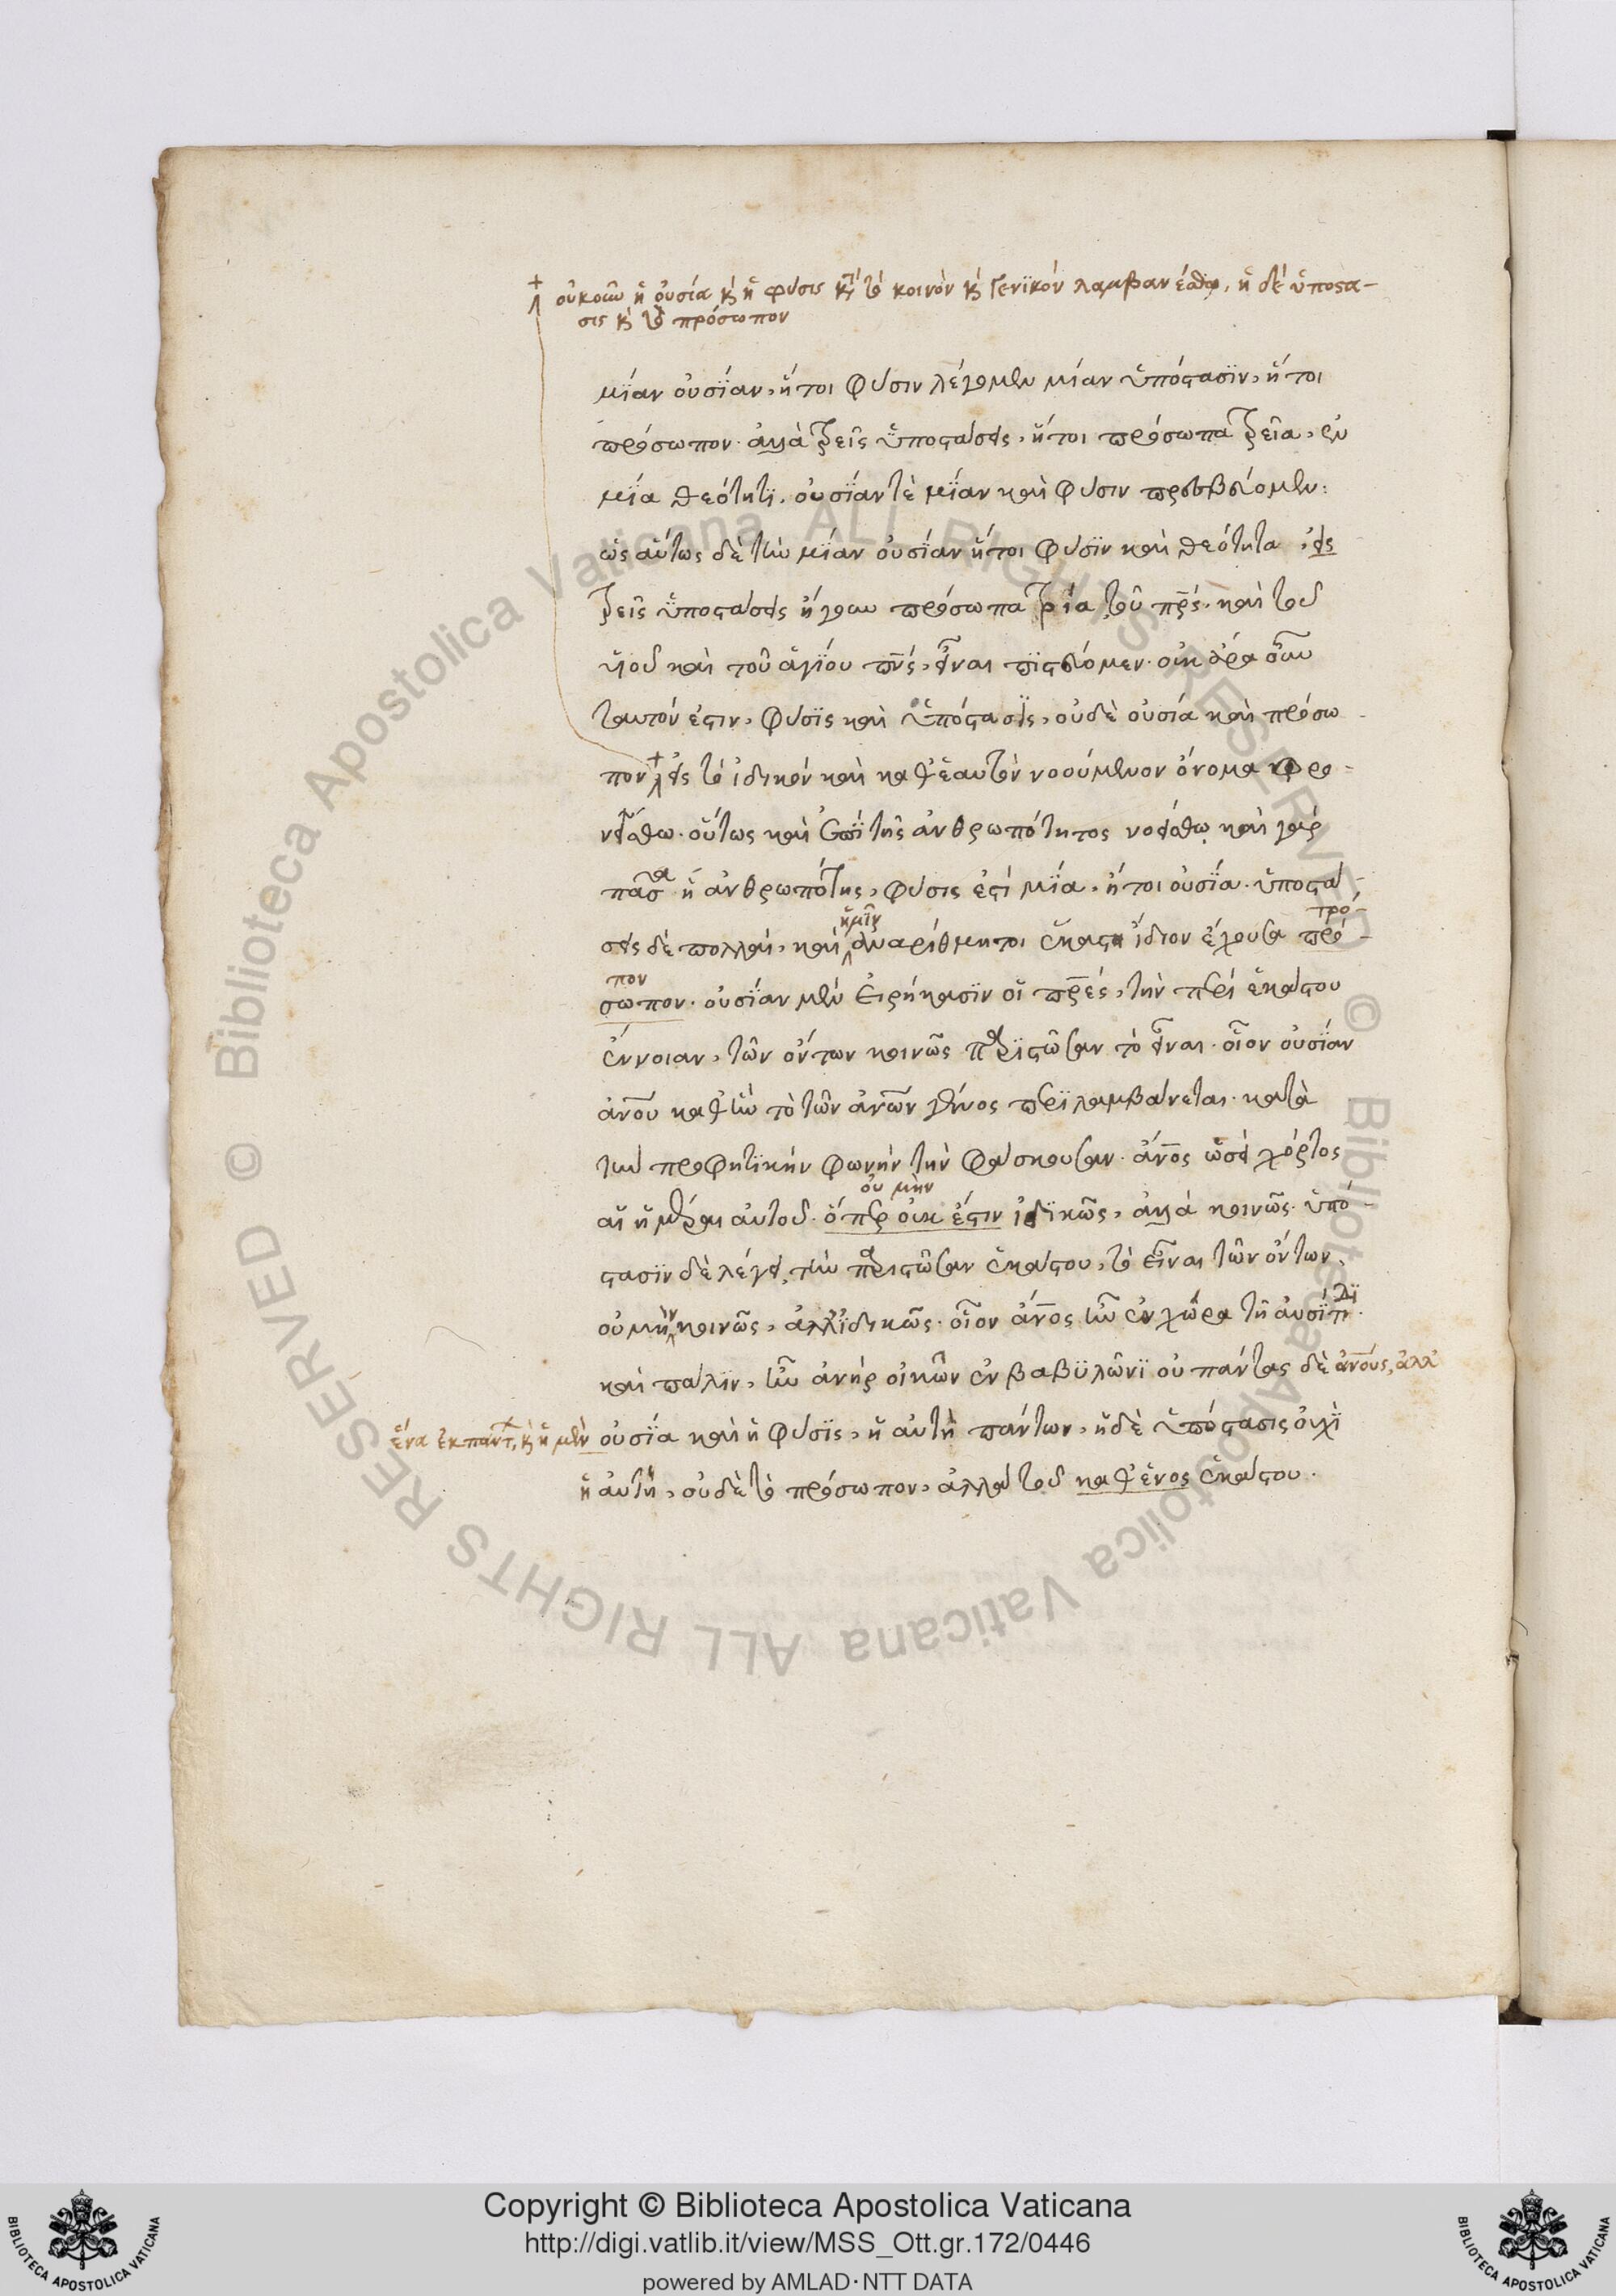 οὐκοῦν ἡ οὐσία κὶ ἡ φύσις κτ τὸ κοινὸν κὶ γενϊκὸν λαμβανέσθω, ἡ δὲ ὑποστα-
σις κὶ τὸ πρόσωπον
μίαν οὐσίαν, ἤτοι φύσιν λέγομεν μίαν ὑπόστασϊν, ἤτοι
πρόσωπον· ἀλλὰ τρεῖς ὑποστάσεις, ἤτοι πρόσωπα τρεῖα, ἐν
μϊᾶ θεότητϊ. οὐσίαν τὲ μίαν καὶ φύσιν πρεσβεύομεν:
ὡς αὕτως δὲ τὴν μίαν οὐσίαν ἤτοι φύσϊν καὶ θεότητα, εἰς
τρεῖς ὑποστάσεις ἤγουν πρόσωπα τρία τοῦ πρς· καὶ τοῦ
υἱοῦ καὶ τοῦ ἁγίου πνς, εἶναι πϊστεύομεν· οὐκ ἄρα οὖν
ταυτόν ἐστιν, φύσϊς καὶ ὑπόστασις, οὐδὲ οὐσία καὶ πρόσω
πον εἰς τὸ ἰδικὸν καὶ καθ' ἑαυτὸν νοούμενον ὄνομα φρο-
νείσθω· οὕτως καὶ ἐπὶ τῆς ἀνθρωπότητος νοείσθω καὶ γὰρ
πᾶσα ἡ ἀνθρωπότης, φύσις ἐστὶ μϊα, ἤτοι οὐσϊα· ὑποστά
ἡμῖν τρό-
σεις δὲ πολλαὶ, καὶ ἀναρίθμητοι ἑκάστη ἴδιον ἔχουσα πρό-
πον
σωπον· οὐσίαν μὲν εἰρήκασϊν οἱ πρες, τὴν περὶ ἑκάστου
ἔννοιαν, τῶν ὄντων κοινῶς παρϊστῶσαν τὸ εἶναι· οἷον οὐσϊαν
ἀνου καθ' ἣν τὸ τῶν ἀνων γένος περϊλαμβάνεται· κατὰ
τὴν προφητϊκὴν φωνὴν τὴν φάσκουσαν· ἄνος ὡσεὶ χόρτος
οὐ μὴν
αἱ ἡμέραι αὐτοῦ· ὅπερ οὐκ ἔστιν ἰδϊκῶς, ἀλλὰ κοινῶς· ὑπό
στασϊν δὲ λέγει, τὴν παριστῶσαν ἑκάστου, τὸ εἶναι τῶν ὄντων,
οὐ μὴν κοινῶς, ἀλλ' ἰδικῶς· οἷον ἄνος ἦν ἐν χώρα τῆ αὐσίτϊδϊ·
καὶ πάλϊν, ἦν ἀνὴρ οἰκῶν ἐν βαβϋλῶνϊ οὐ πάντας δὲ ἀνους, ἀλλ'
ἕνα ἐκ πάντ, κὶ ἡ μὲν οὐσία καὶ ἡ φύσϊς, ἡ αὐτὴ πάντων, ἡ δὲ ὑπόστασις οὐχὶ
ἡ αὐτὴ, οὐδὲ τὸ πρόσωπον, ἀλλὰ τοῦ καθ' ἑνος ἑκάστου.
© Biblioteca Apostolica Vaticana ALL RIGHTS RESERVED © Biblioteca Apostolica Vaticana ALL RIGHTS RESERVED
Copyright © Biblioteca Apostolica Vaticana
http://digi.vatlib.it/view/MSS_Ott.gr.172/0446
powered by AMLAD·NTT DATA
BIBLIOTECA APOSTOLICA VATICANA
BIBLIOTECA APOSTOLICA VATICANA